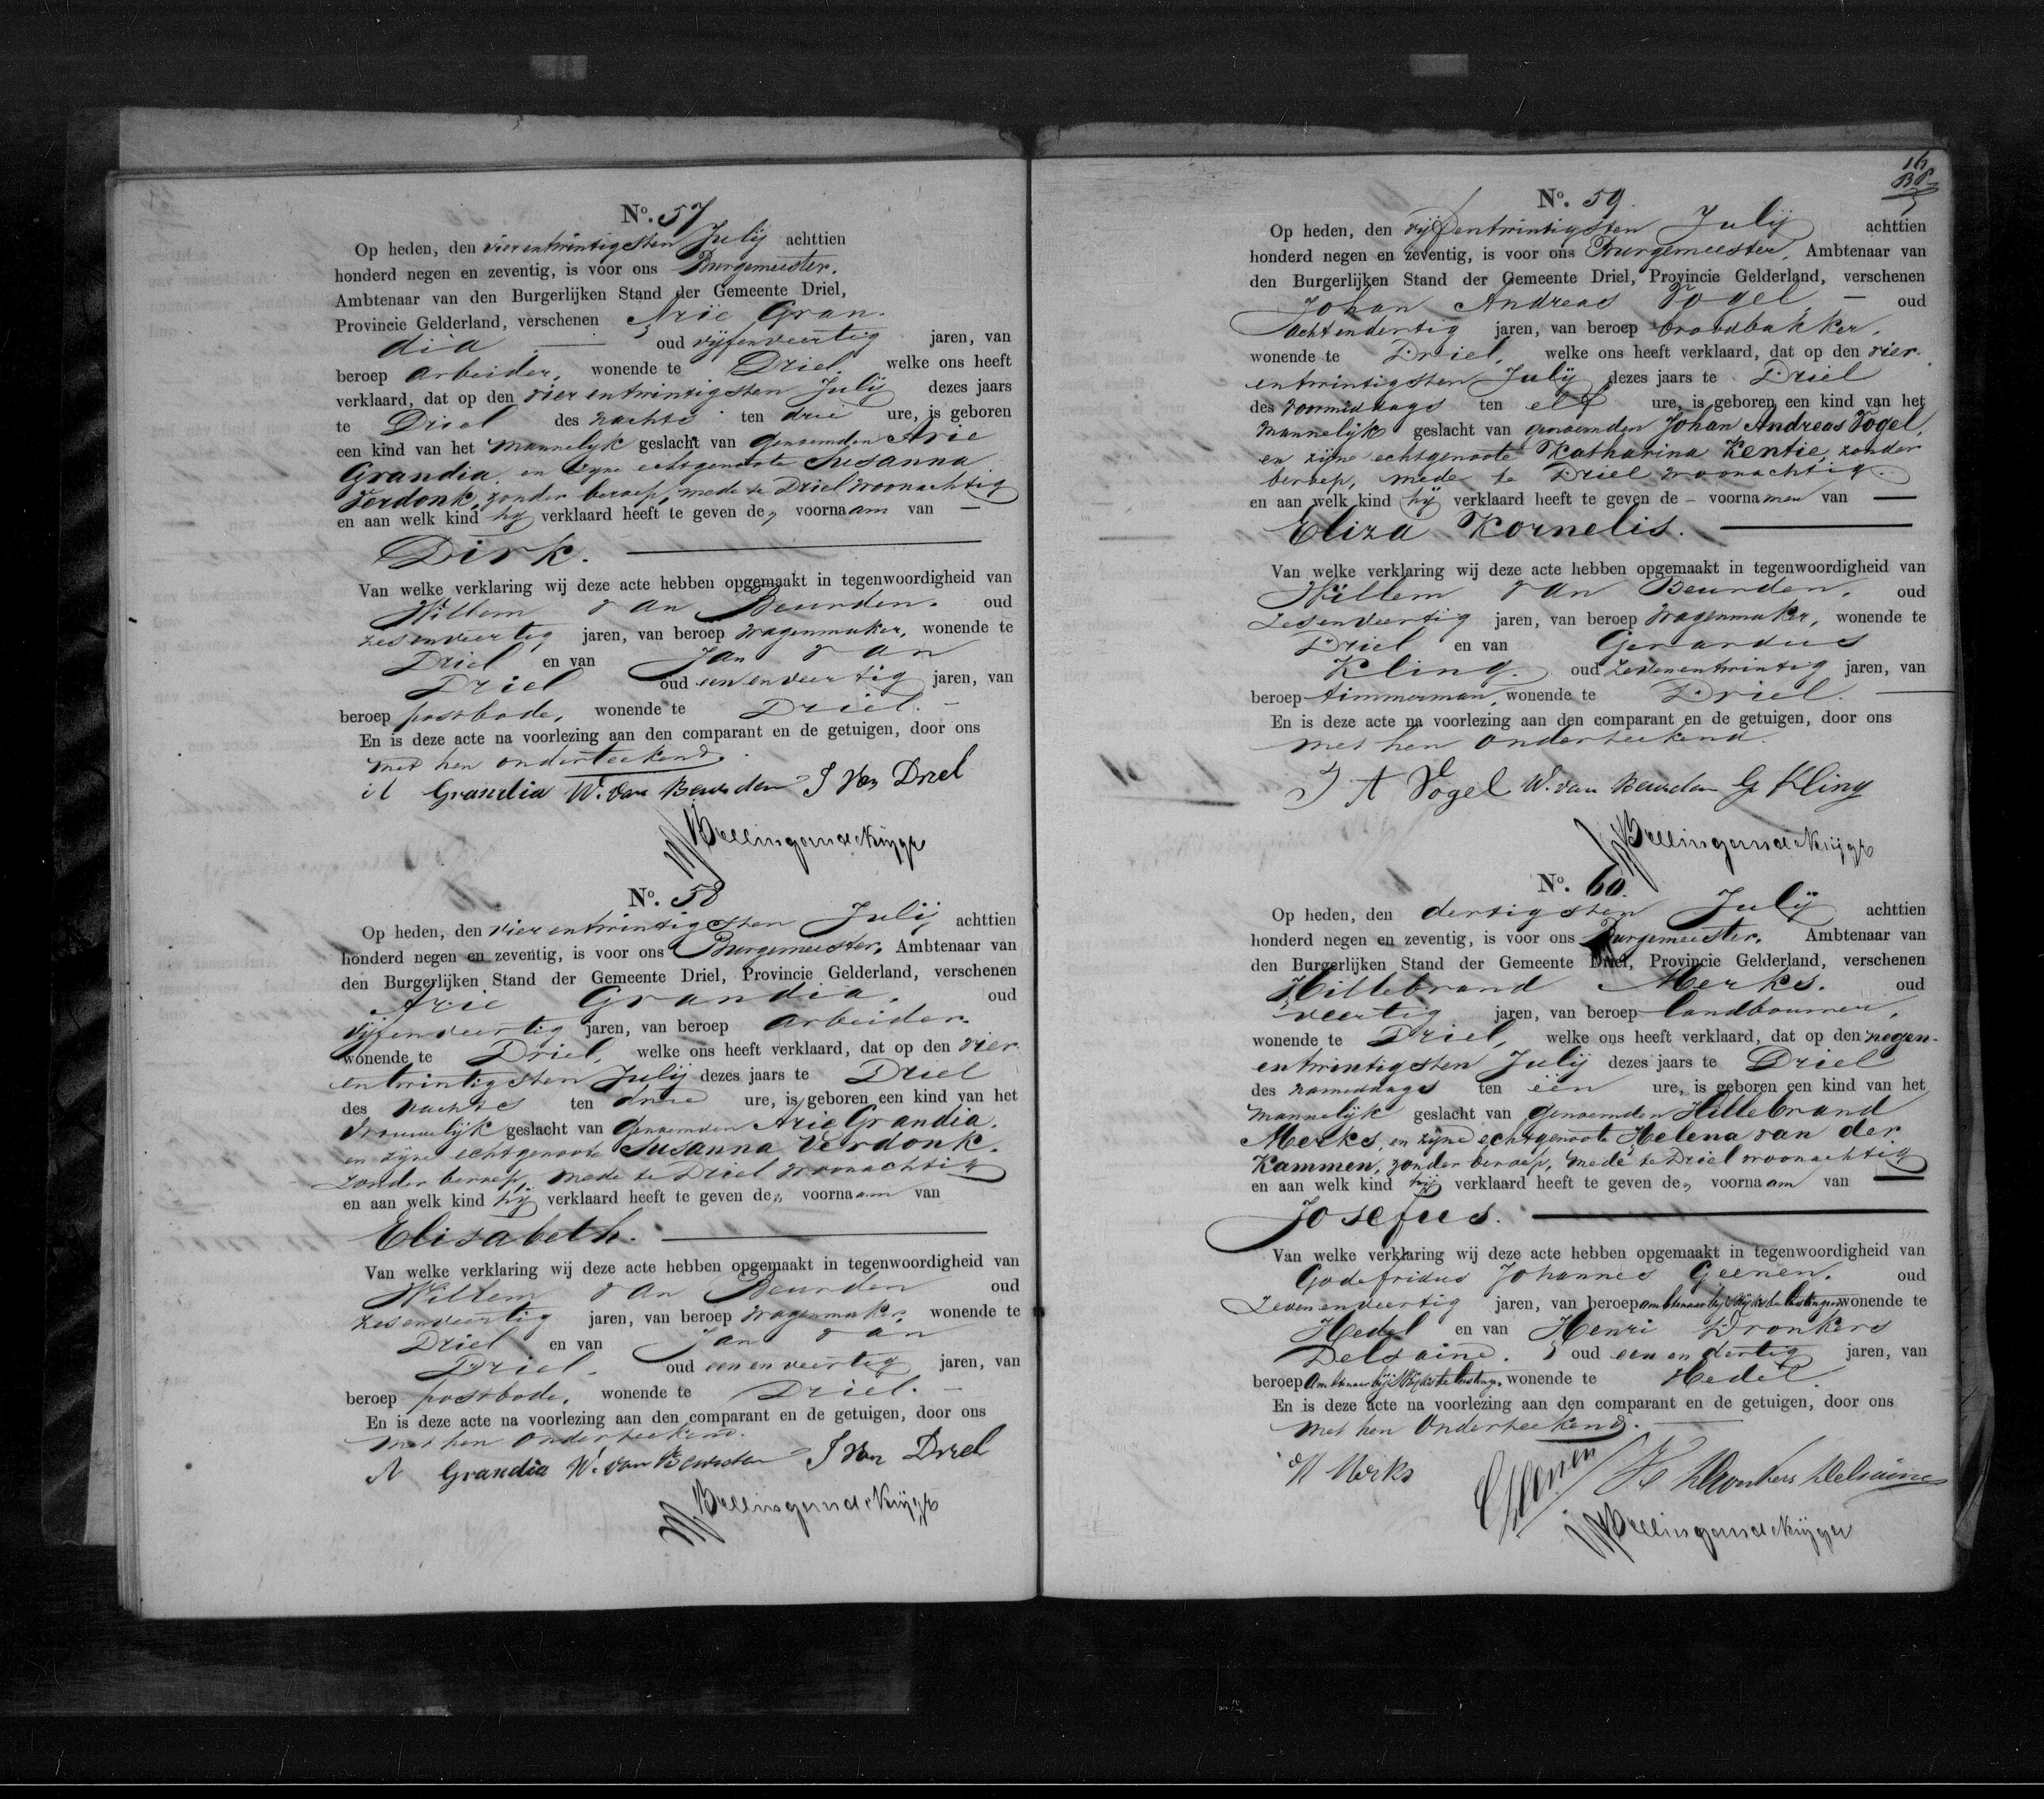 No. 57
Op heden, den vierentwintigsten July achttien
honderd negen en zeventig, is voor ons Burgemeester.
Ambtenaar van den Burgerlijken Stand der Gemeente Driel,
Provincie Gelderland, verschenen Arie Gran-
dia — oud vijfenveertig jaren, van
beroep arbeider, wonende te Driel, welke ons heeft
verklaard, dat op den vierentwintigsten July dezes jaars
te Driel des nachts ten drie ure, is geboren
een kind van het mannelijk geslacht van genoemden Arie
Grandia, en zijne echtgenoote Susanna
Verdonk, zonder beroep, mede te Driel woonachtig
en aan welk kind hij verklaard heeft te geven den voornaam van —
Dirk. —
Van welke verklaring wij deze acte hebben opgemaakt in tegenwoordigheid van
Willem van Beurden. oud
zesenveertig jaren, van beroep wagenmaker, wonende te
Driel en van Jan van
Driel oud eenenveertig jaren, van
beroep postbode, wonende te Driel. —
En is deze acte na voorlezing aan den comparant en de getuigen, door ons
met hen onderteekend.
A Grandia W. van Beurden J Van Driel
No. 58
Op heden, den vierentwintigsten July achttien
honderd negen en zeventig, is voor ons Burgemeester, Ambtenaar van
den Burgerlijken Stand der Gemeente Driel, Provincie Gelderland, verschenen
Arie Grandia. oud
vijfenveertig jaren, van beroep arbeider
wonende te Driel, welke ons heeft verklaard, dat op den vier
entwintigsten July dezes jaars te Driel
des nachts ten drie ure, is geboren een kind van het
vrouwelijk geslacht van genoemden Arie Grandia.
en zijne echtgenoote Susanna Verdonk.
zonder beroep, mede te Driel woonachtig
en aan welk kind hij verklaard heeft te geven den voornaam van
Elisabeth. —
Van welke verklaring wij deze acte hebben opgemaakt in tegenwoordigheid van
Willem van Beurden oud
zesenveertig jaren, van beroep wagenmaker, wonende te
Driel en van Jan van
Driel. oud eenenveertig jaren, van
beroep postbode, wonende te Driel. —
En is deze acte na voorlezing aan den comparant en de getuigen, door ons
met hen onderteekend.
A Grandia W. van Beurden J Van Driel
16
No. 59.
Op heden, den vijfentwintigsten July achttien
honderd negen en zeventig, is voor ons Burgemeester, Ambtenaar van
den Burgerlijken Stand der Gemeente Driel, Provincie Gelderland, verschenen
Johan Andreas Vogel — oud
achtendertig jaren, van beroep broodbakker,
wonende te Driel, welke ons heeft verklaard, dat op den vier
entwintigsten July dezes jaars te Driel
des voormiddags ten elf ure, is geboren een kind van het
mannelijk geslacht van genoemden Johan Andreas Vogel,
en zijne echtgenoote Katharina Kentie, zonder
beroep, mede te Driel woonachtig.
en aan welk kind hij verklaard heeft te geven de – voornamen van —
Eliza Kornelis. —
Van welke verklaring wij deze acte hebben opgemaakt in tegenwoordigheid van
Willem van Beurden. oud
zesenveertig jaren, van beroep wagenmaker, wonende te
Driel en van Gerardus
Kling. oud zevenentwintig jaren, van
beroep timmerman, wonende te Driel. —
En is deze acte na voorlezing aan den comparant en de getuigen, door ons
met hen onderteekend.
J A Vogel W. van Beurden G Kling
No. 60.
Op heden, den dertigsten July achttien
honderd negen en zeventig, is voor ons Burgemeester. Ambtenaar van
den Burgerlijken Stand der Gemeente Driel, Provincie Gelderland, verschenen
Hillebrand Merks. oud
veertig jaren, van beroep landbouwer,
wonende te Driel, welke ons heeft verklaard, dat op den negen-
entwintigsten July dezes jaars te Driel
des namiddags ten één ure, is geboren een kind van het
mannelijk geslacht van genoemden Hillebrand
Merks, en zijne echtgenoote Helena van der
Kammen, zonder beroep, mede te Driel woonachtig
en aan welk kind hij verklaard heeft te geven den voornaam van —
Josefus. —
Van welke verklaring wij deze acte hebben opgemaakt in tegenwoordigheid van
Godefridus Johannes Geenen. oud
zevenenveertig jaren, van beroep ambtenaar bij 's Rijks belastingen, wonende te
Hedel en van Henri Dronkers
Delsaine. oud eenendertig jaren, van
beroep Ambtenaar bij 's Rijks belastingen, wonende te Hedel.
En is deze acte na voorlezing aan den comparant en de getuigen, door ons
met hen onderteekend. —
H Merks Geenen H Dronkers Delsaine